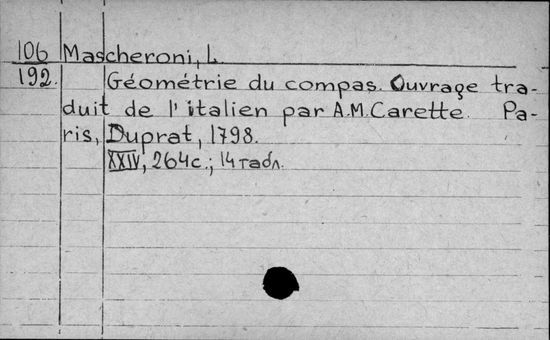 106 Mascheroni, L.
192. Géométrie du compas. Ouvrage tra-
duit de l'italien par A.M.Carette. Pa-
ris, Duprat, 1798.
XXIV, 264с.; 14 табл.